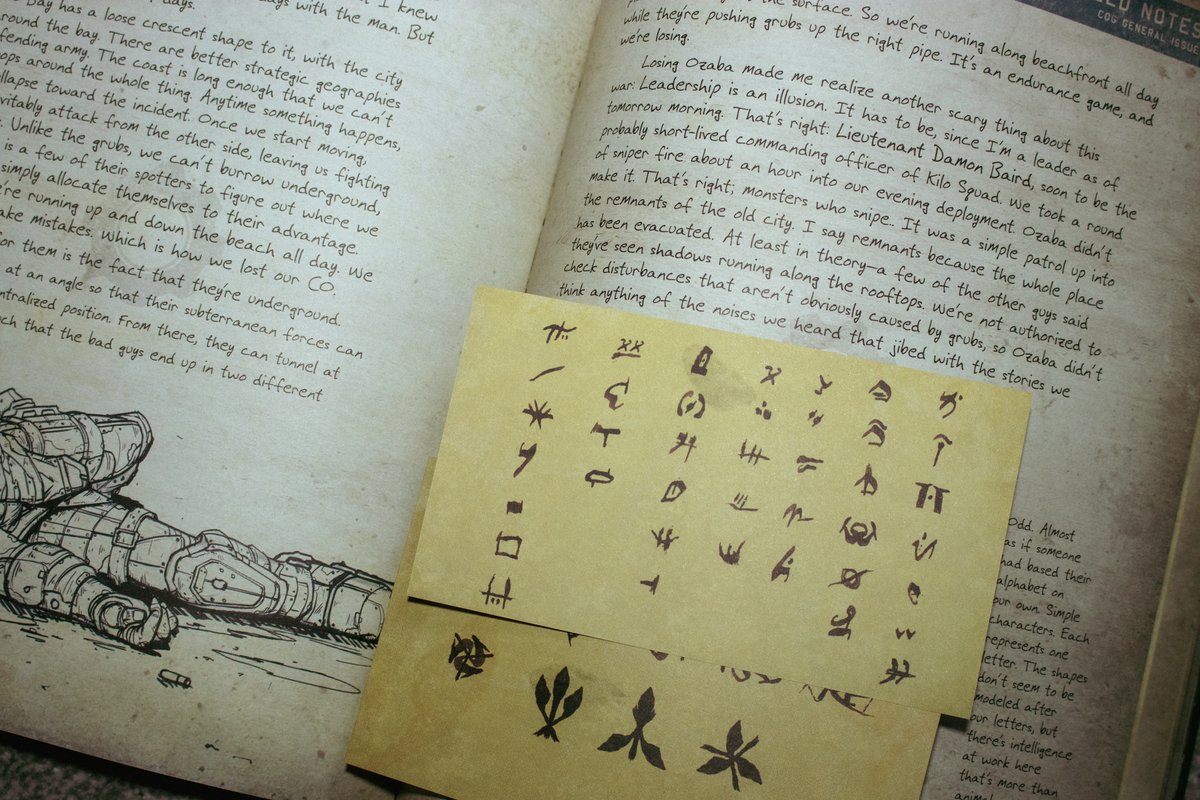 I knew
days with the man. But
Bay has a loose crescent shape to it, with the city
around the bay. There are better strategic geographies
army. The coast is long enough that we can't
around the whole thing. Anytime something happens,
toward the incident. Once we start moving,
attack from the other side, leaving us fighting
Unlike the grubs, we can't burrow underground,
is a few of their spotters to figure out where we
simply allocate themselves to their advantage.
running up and down the beach all day. We
mistakes. Which is how we lost our CO.
for them is the fact that they're underground.
at an angle so that their subterranean forces can
position. From there, they can tunnel at
such that the bad guys end up in two different
NOTES
COG GENERAL ISSUE
the surface. So we're running along beachfront all day
while they're pushing grubs up the right pipe. It's an endurance game, and
we're losing.
Losing Ozaba made me realize another scary thing about this
war: Leadership is an illusion. It has to be, since I'm a leader as of
tomorrow morning. That's right: Lieutenant Damon Baird, soon to be the
probably short-lived commanding officer of Kilo Squad. We took a round
of sniper fire about an hour into our evening deployment. Ozaba didn't
make it. That's right; monsters who snipe. It was a simple patrol up into
the remnants of the old city. I say remnants because the whole place
has been evacuated. At least in theory—a few of the other guys said
they've seen shadows running along the rooftops. We're not authorized to
check disturbances that aren't obviously caused by grubs, so Ozaba didn't
think anything of the noises we heard that jibed with the stories we
Odd. Almost
as if someone
had based their
alphabet on
our own. Simple
characters. Each
represents one
letter. The shapes
don't seem to be
modeled after
our letters, but
there's intelligence
at work here
that's more than